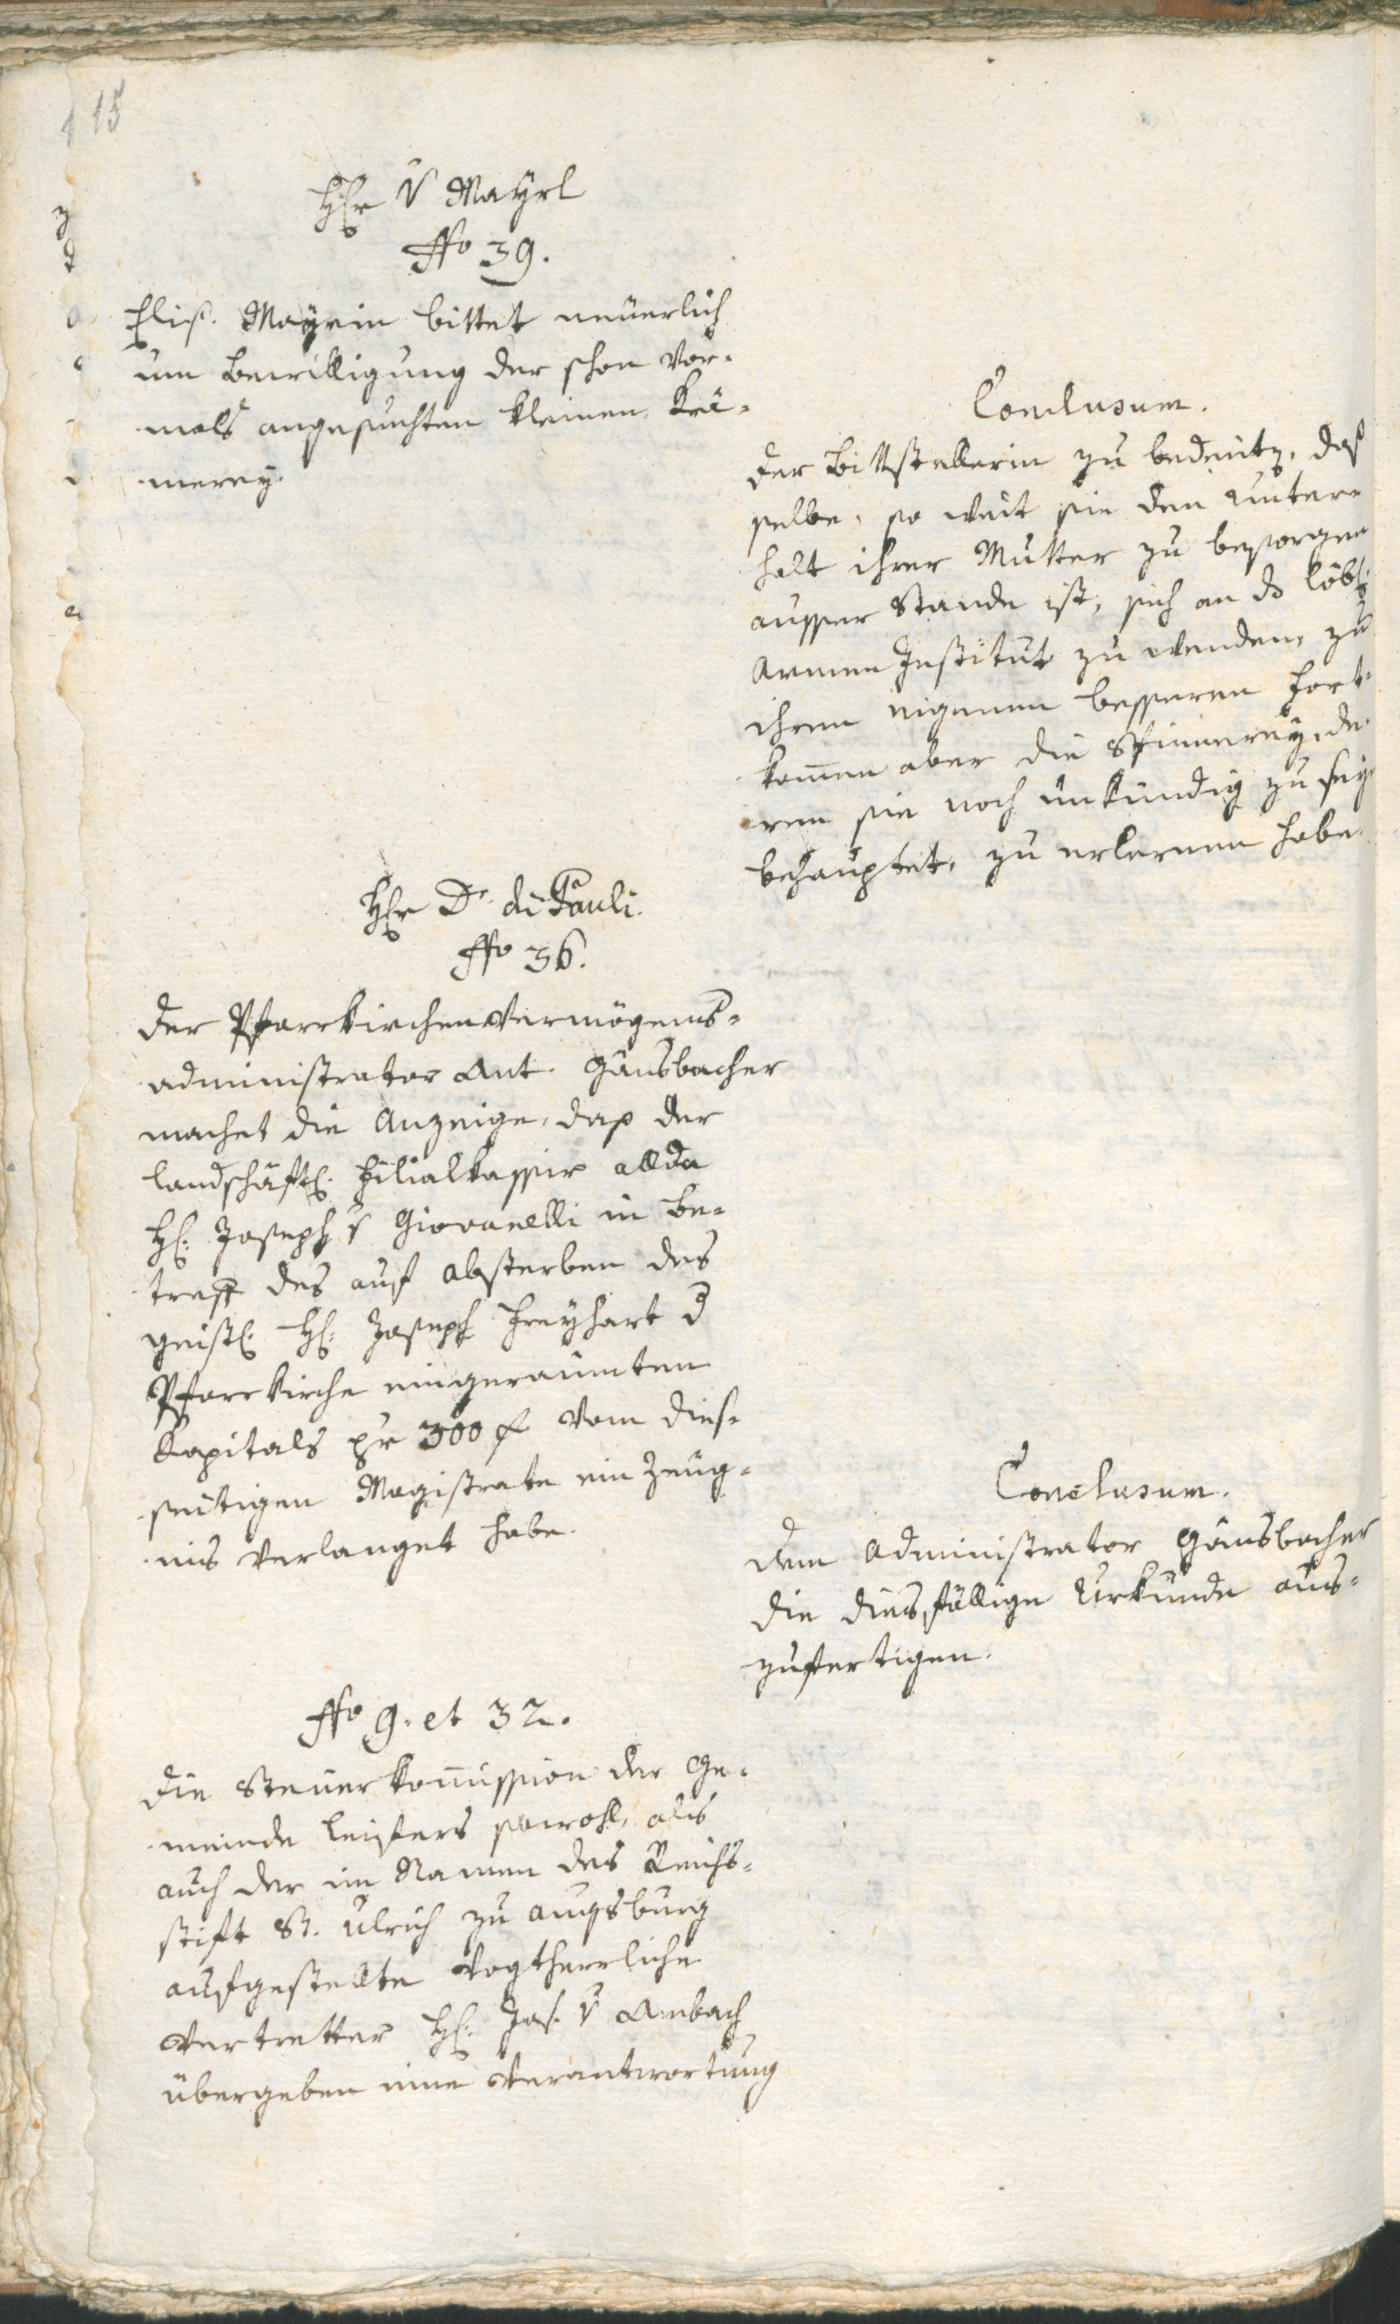 115
Hr v Mayrl
Fſo 39.
Elis. Mayrin bittet neuerlich
um Bewilligung der schon vor-
mals angesuchten kleinen Krä-
merey.
Conclusum.
der Bittstellerin zu bedeuten, daß
selbe, so weit sie den Unter-
halt ihrer Mutter zu besorgen
ausser Stande ist, sich an das löbl:
Armen Institut zu wenden, zu
ihrem eigenen besseren Fort-
kommen aber die Spinnerey, de-
ren sie noch unkundig zu seyn
behauptet, zu erlernen habe.
Hr Dr di Pauli.
Fſo 36.
der Pfarrkirchenvermögens-
administrator Ant. Gänsbacher
machet die Anzeige, daß der
landschäftl: Filialkassir allda
H: Joseph v Giovanelli in Be-
treff des auf Absterben des
geistl: H: Joseph Freyhart d
Pfarrkirche eingeraumten
Kapitals pr 300 f vom dies-
seitigen Magistrate ein Zeug-
nis verlanget habe.
Conclusum.
dem Administrator Gänsbacher
die diesfällige Urkunde aus-
zufertigen.
Fſo 9. et 32.
die Steuerkommission der Ge-
meinde Leifers sowohl, als
auch der im Namen des Reichs-
stift St. Ulrich zu Augsburg
aufgestellte Vogtherrliche
Vertretter H: Jos. v Ambach
übergeben eine Verantwortung